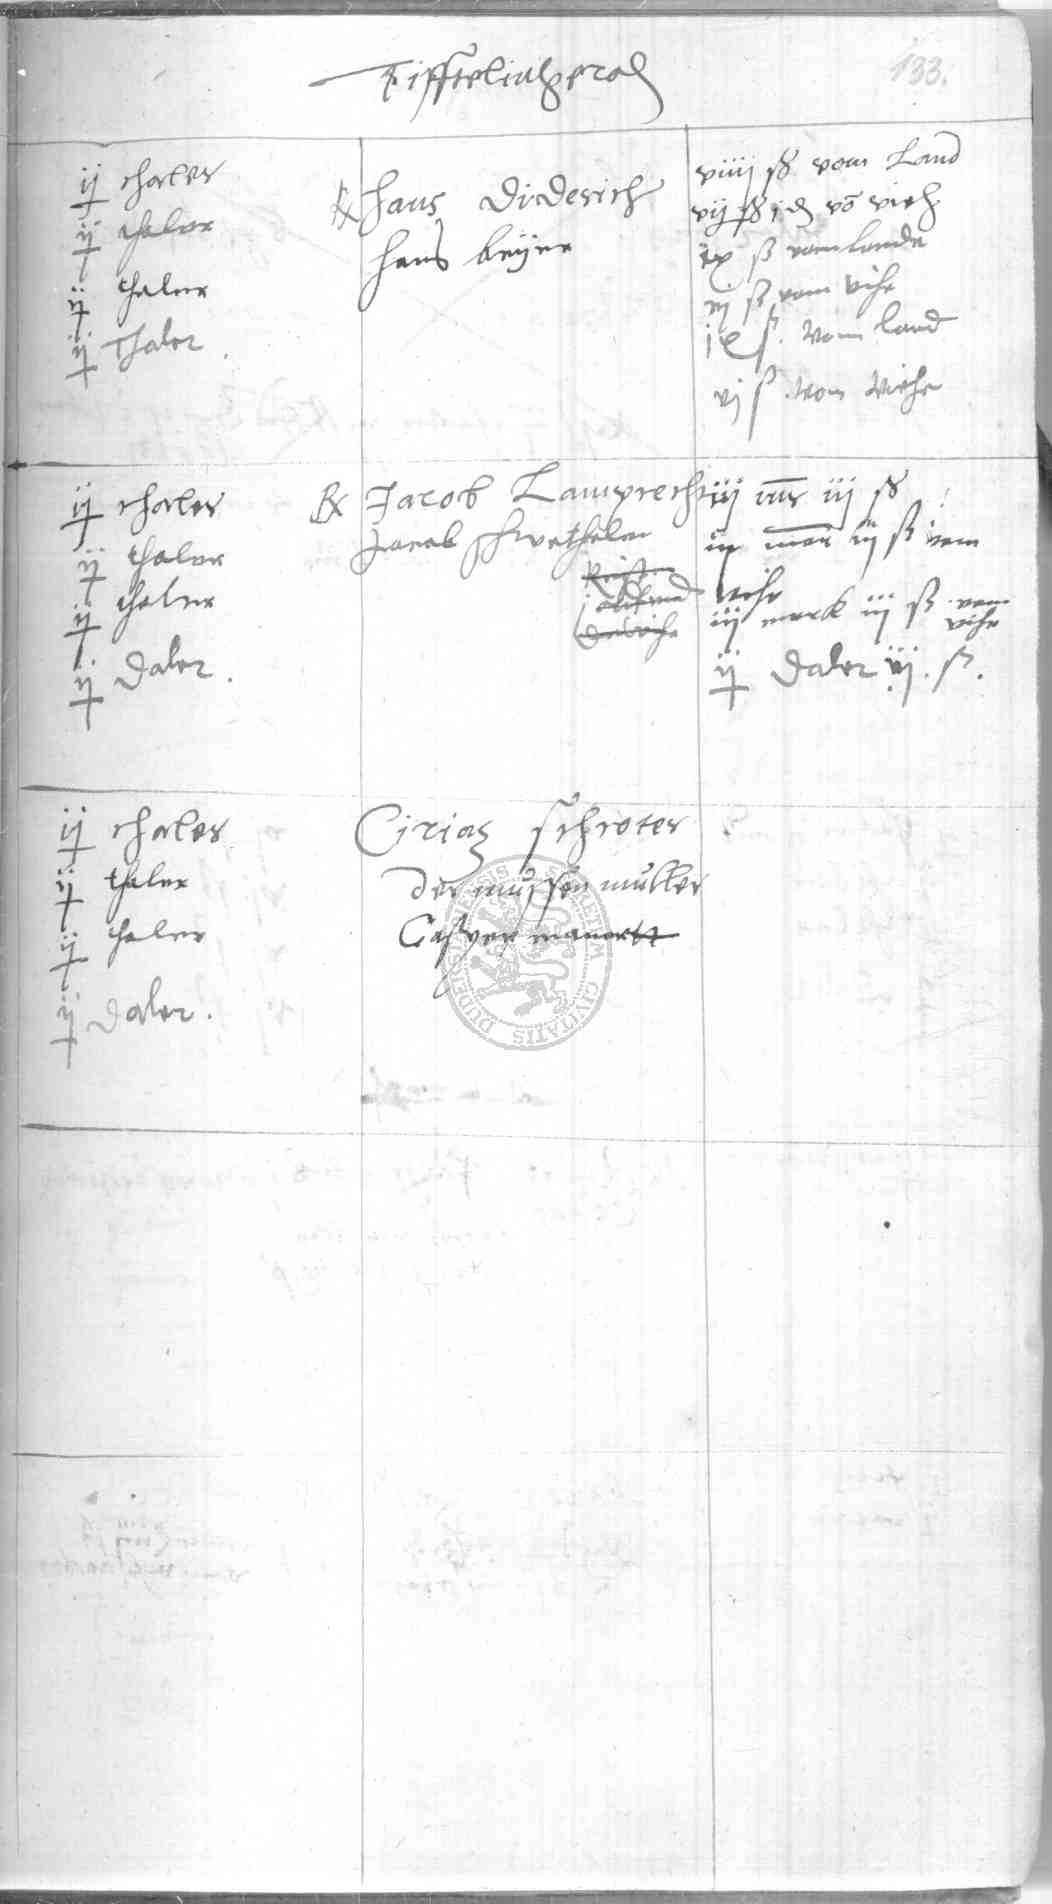 Tifftelingerod
133.
ij thaler
ij thaler
ij thaler
ij Thaler.
Hans Diderich
Hans beyer
viiij ß vom Land
vij ß j d vō vieh
ix ß vom lande
vj ß vom vihe
ix ß. vom land
vj ß. vom viehe
ij thaler
ij thaler
ij thaler
ij Daler.
Jacob Lamprecht
Jacob
iij mr iij ß
iij mar iij ß vom
vihe
iij marck iij ß vom
vihe
ij Daler iij. ß.
ij thaler
ij thaler
ij thaler
ij Daler.
Ciriax schroter
der muller
Casper
SIGILLUM SECRETUM CIVITATIS DUDERSTADENSIS